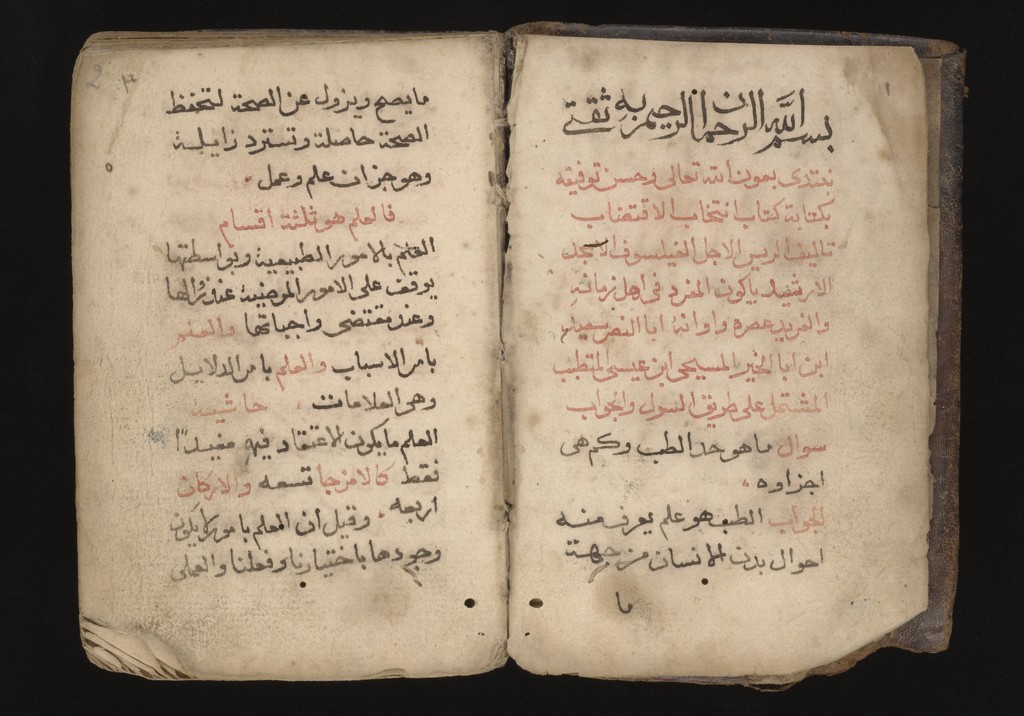 ١
بسم الله الرحمن الرحيم به ثقتي
نبتدى بعون الله تعالى وحسن توفيقه
بكتابة كتاب انتخاب الاقتضاب
تاليف الريس الاجل الفيلسوف الامجد
الارشيدياكون المفرد في اهل زمانه
والفريد عصره واوانه ابا النصر سعيد
ابن ابا الخير المسيحي ابن عيسى المتطبب
المشتمل على طريق السول والجواب
سوال ما هو حد الطب وكم هي
اجزاوه
الجواب الطب هو علم يعرف منه
احوال بدن الانسان من جهة
ما
2
ما يصح ويزول عن الصحة لتحفظ
الصحة حاصلة وتسترد زايلة
وهو جزان علم وعمل
فالعلم هو ثلثة اقسام
العلم بالامور الطبيعية وبواسطتها
يوقف على الامور المرضية عند زوالها
وعند مقتضى واجباتها والعلم
بامر الاسباب والعلم بامر الدلايل
وهى العلامات حاشيه
العلم ما يكون الاعتقاد فيه مفيدًا
فقط كالامزجا تسعه والاركان
اربعه وقيل أن العلم بامور لا يكون
وجودها باختيارنا وفعلنا والعملى